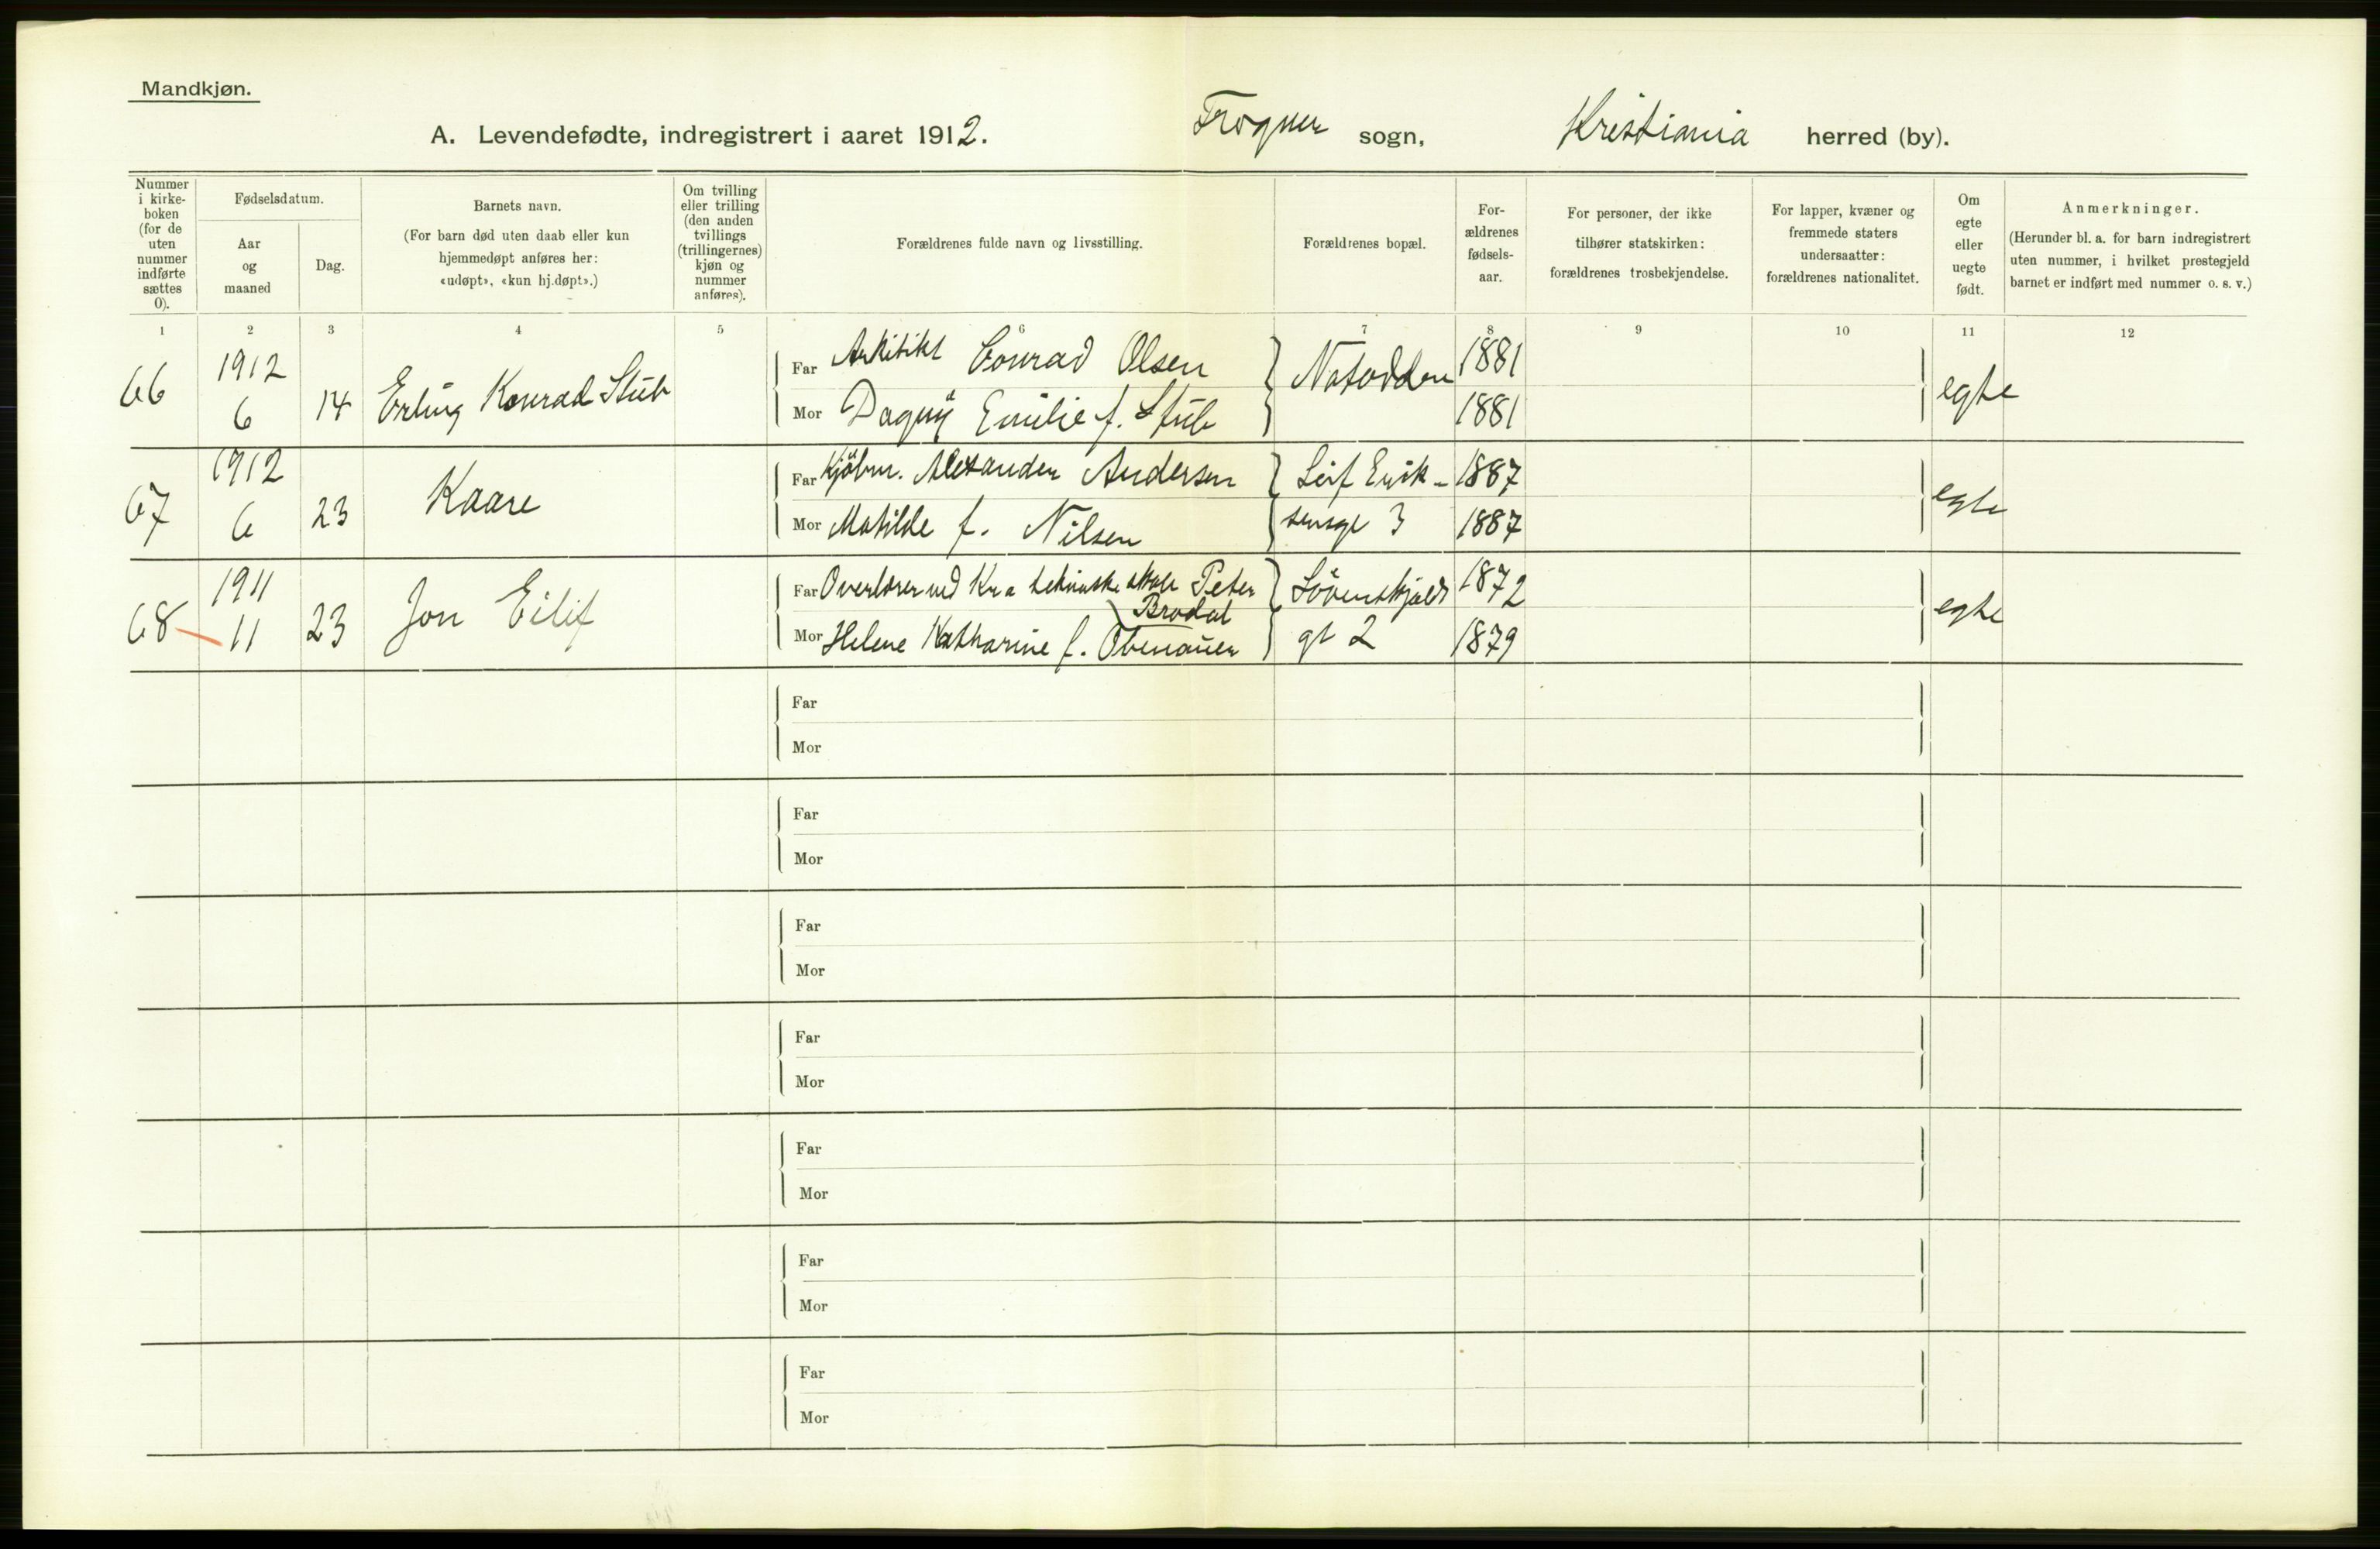 Mandkjøn.
A. Levendefødte, indregistrert i aaret 1912.
Frogner sogn,
Kristiania herred (by).
Nummer i kirke-boken (for de uten nummer indførte sættes 0).
Fødselsdatum.
Aar og maaned
Dag.
Barnets navn.
(For barn død uten daab eller kun
hjemmedøpt anføres her:
«udøpt», «kun hj.døpt».)
Om tvilling
eller trilling
(den anden
tvillings
(trillingernes)
kjøn og
nummer
anføres).
Forældrenes fulde navn og livsstilling.
Forældrenes bopæl.
For-
ældrenes
fødsels-
aar.
For personer, der ikke
tilhører statskirken:
forældrenes trosbekjendelse.
For lapper, kvæner og
fremmede staters
undersaatter:
forældrenes nationalitet.
Om
egte
eller
uegte
født.
Anmerkninger.
(Herunder bl. a. for barn indregistrert
uten nummer, i hvilket prestegjeld
barnet er indført med nummer o. s. v.)
1 2 3 4 5 6 7 8 9 10 11 12
66 1912 6 14 Erling Konrad Stub
Far Arkitekt Conrad Olsen
Mor Dagny Emilie f. Stub
Notodden 1881
1881
egte
67 1912 6 23 Kaare
Far Kjøbm. Alexander Andersen
Mor Matilde f. Nilsen
Leif Erik-
sensgt 3
1887
1887
egte
68 1911 11 23 Jon Eilif
Far Overlærer ved Kra tekniske skole Peter
Brodal
Mor Helene Katharine f. Obenauer
Løvenskjolds
gt 2
1872
1879
egte
Far
Mor
Far
Mor
Far
Mor
Far
Mor
Far
Mor
Far
Mor
Far
Mor